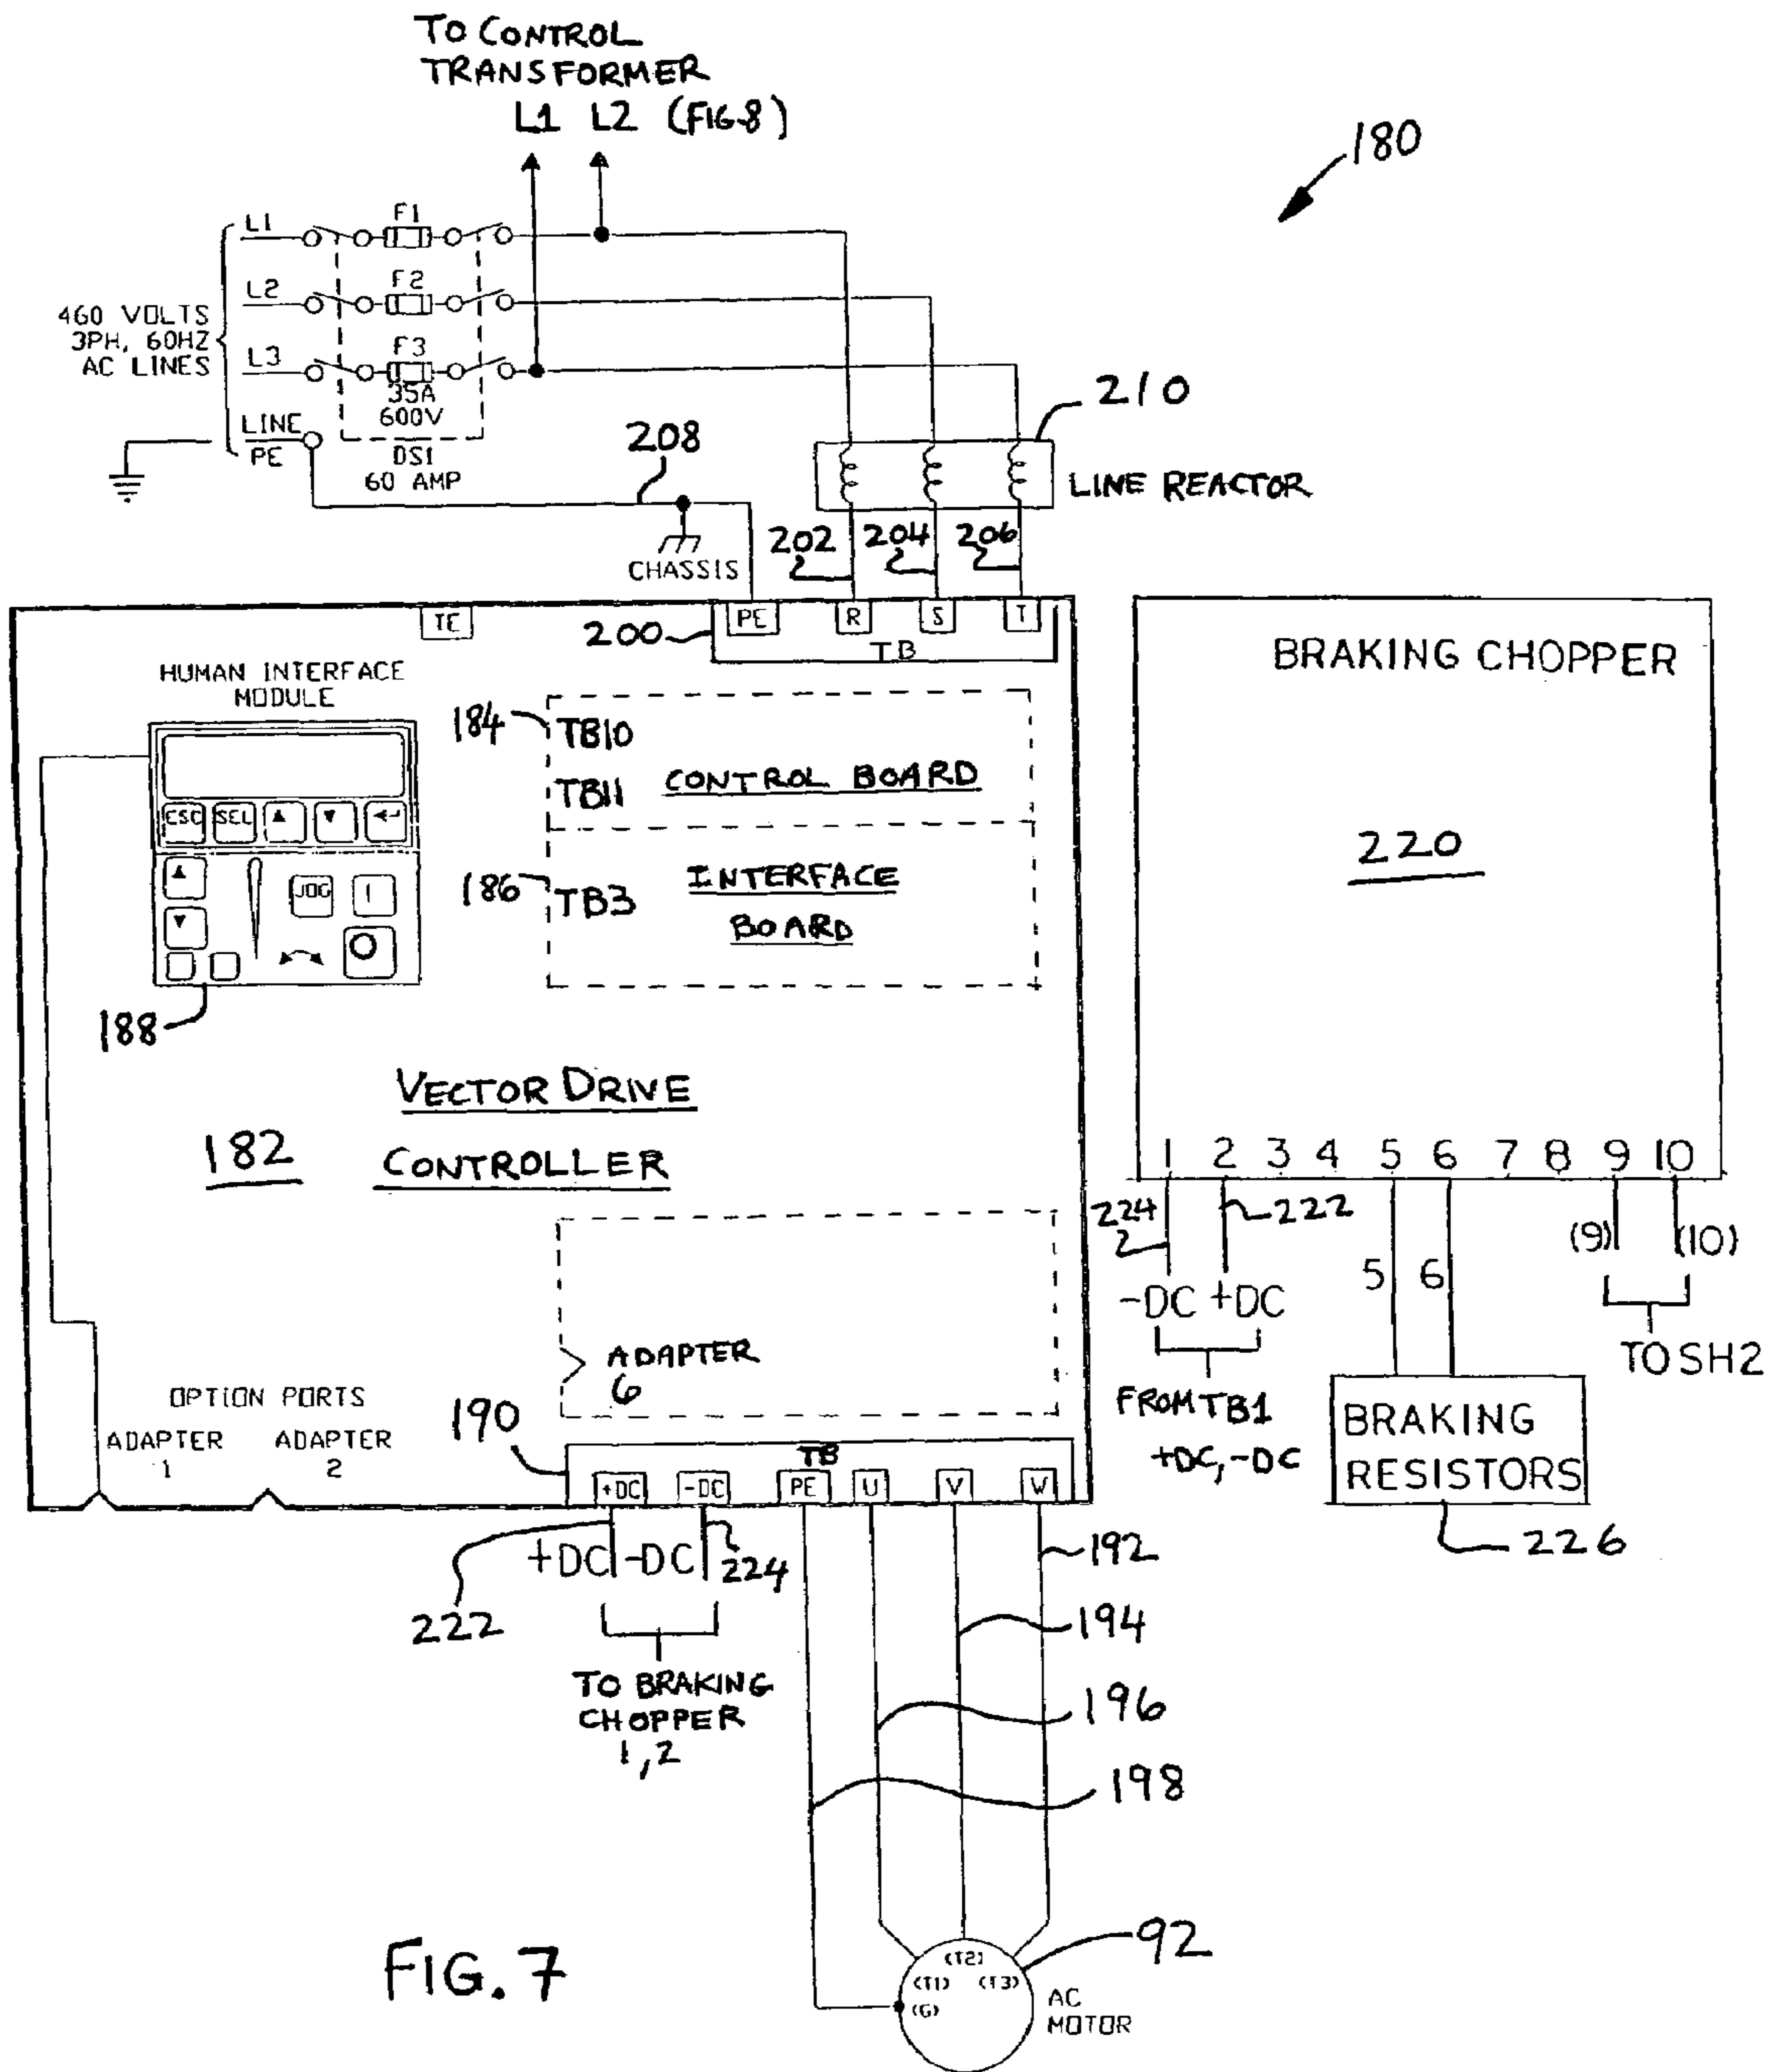 TO CONTROL
TRANSFORMER
L1 L2 (FIG 8)
180
L1
F1
L2
F2
460 VOLTS
3PH, 60HZ
AC LINES
L3
F3
35A
600V
LINE
PE
DS1
60 AMP
208
210
LINE REACTOR
CHASSIS
202
204
206
TE
200
PE R S T
TB
HUMAN INTERFACE
MODULE
ESC SEL
JOG
188
184
TB10
TB11 CONTROL BOARD
186
TB3
INTERFACE
BOARD
VECTOR DRIVE
CONTROLLER
182
ADAPTER
6
OPTION PORTS
ADAPTER
1
ADAPTER
2
190
TB
+DC -DC PE U V W
+DC -DC
222
224
TO BRAKING
CHOPPER
1,2
192
194
196
198
BRAKING CHOPPER
220
1 2 3 4 5 6 7 8 9 10
224
222
-DC +DC
FROM TB1
+DC, -DC
5 6
BRAKING
RESISTORS
226
(9) (10)
TO SH2
92
(T1) (T2) (T3)
(G)
AC
MOTOR
FIG. 7